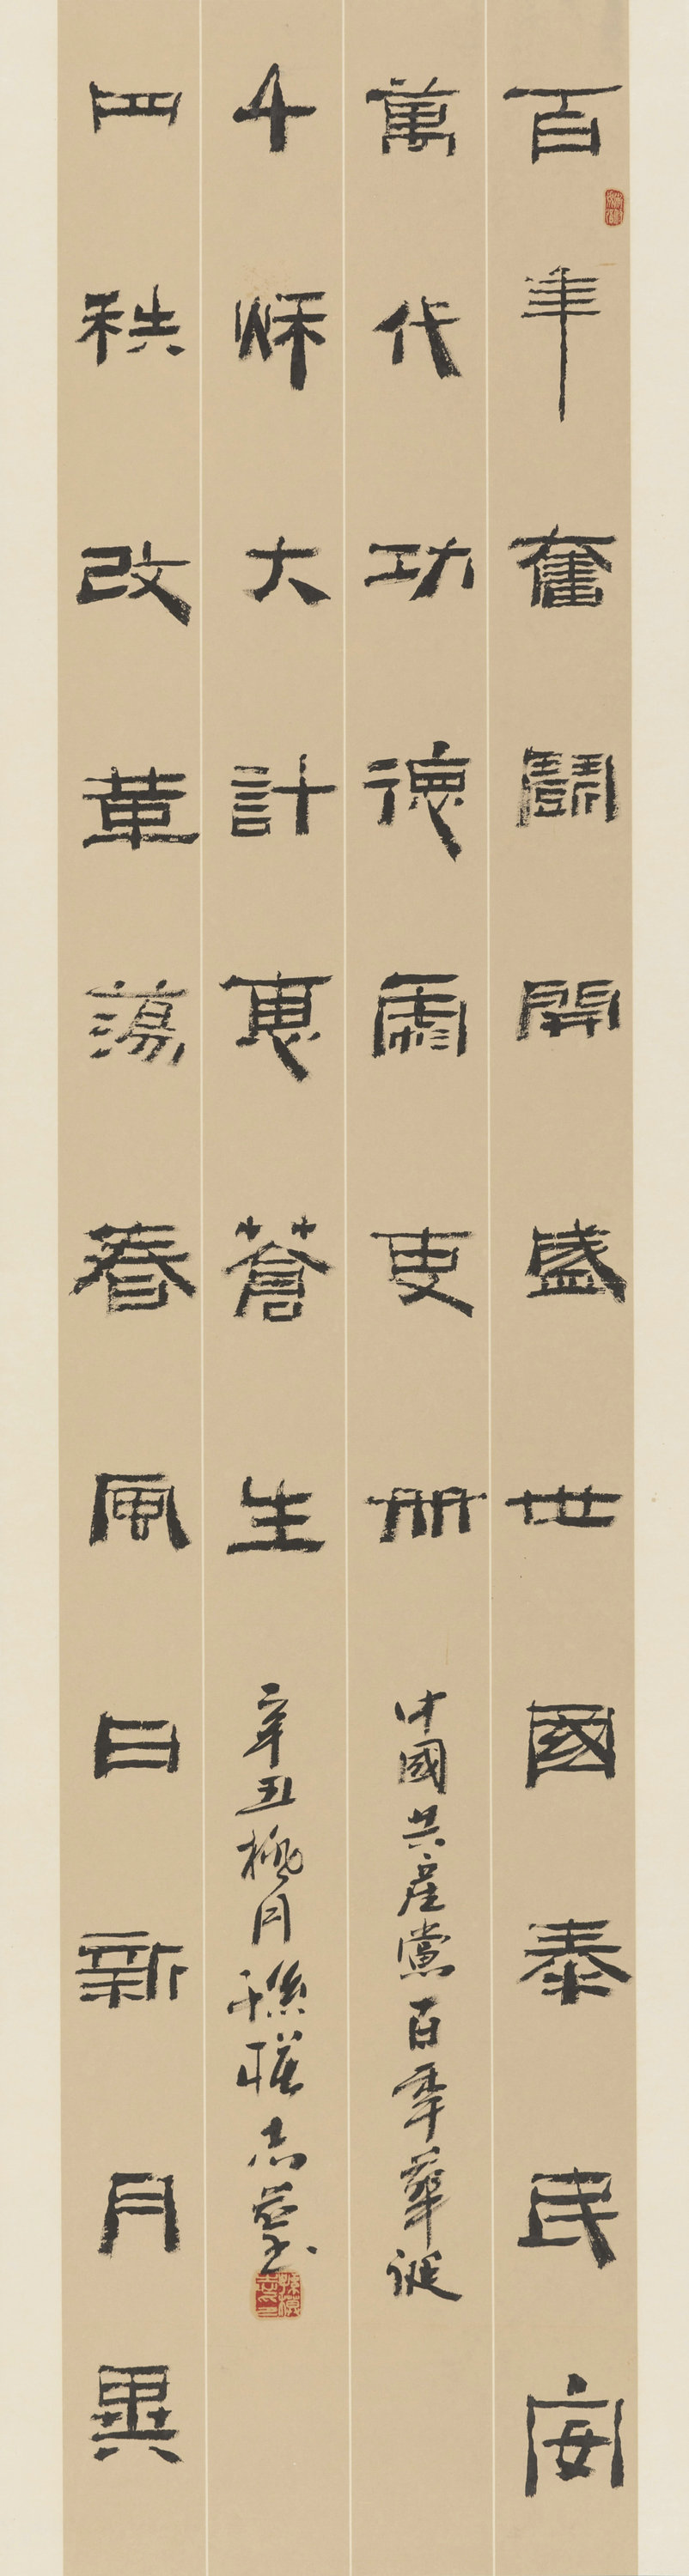 百年奮鬭開盛世國泰民安
萬代功德史册
中國共產黨百年華誕
千秋大計惠蒼生
辛丑桃月孫志並書
四秩改革蕩春風日新月異